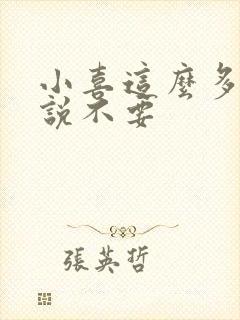 小喜這麼多
說不要
張英哲